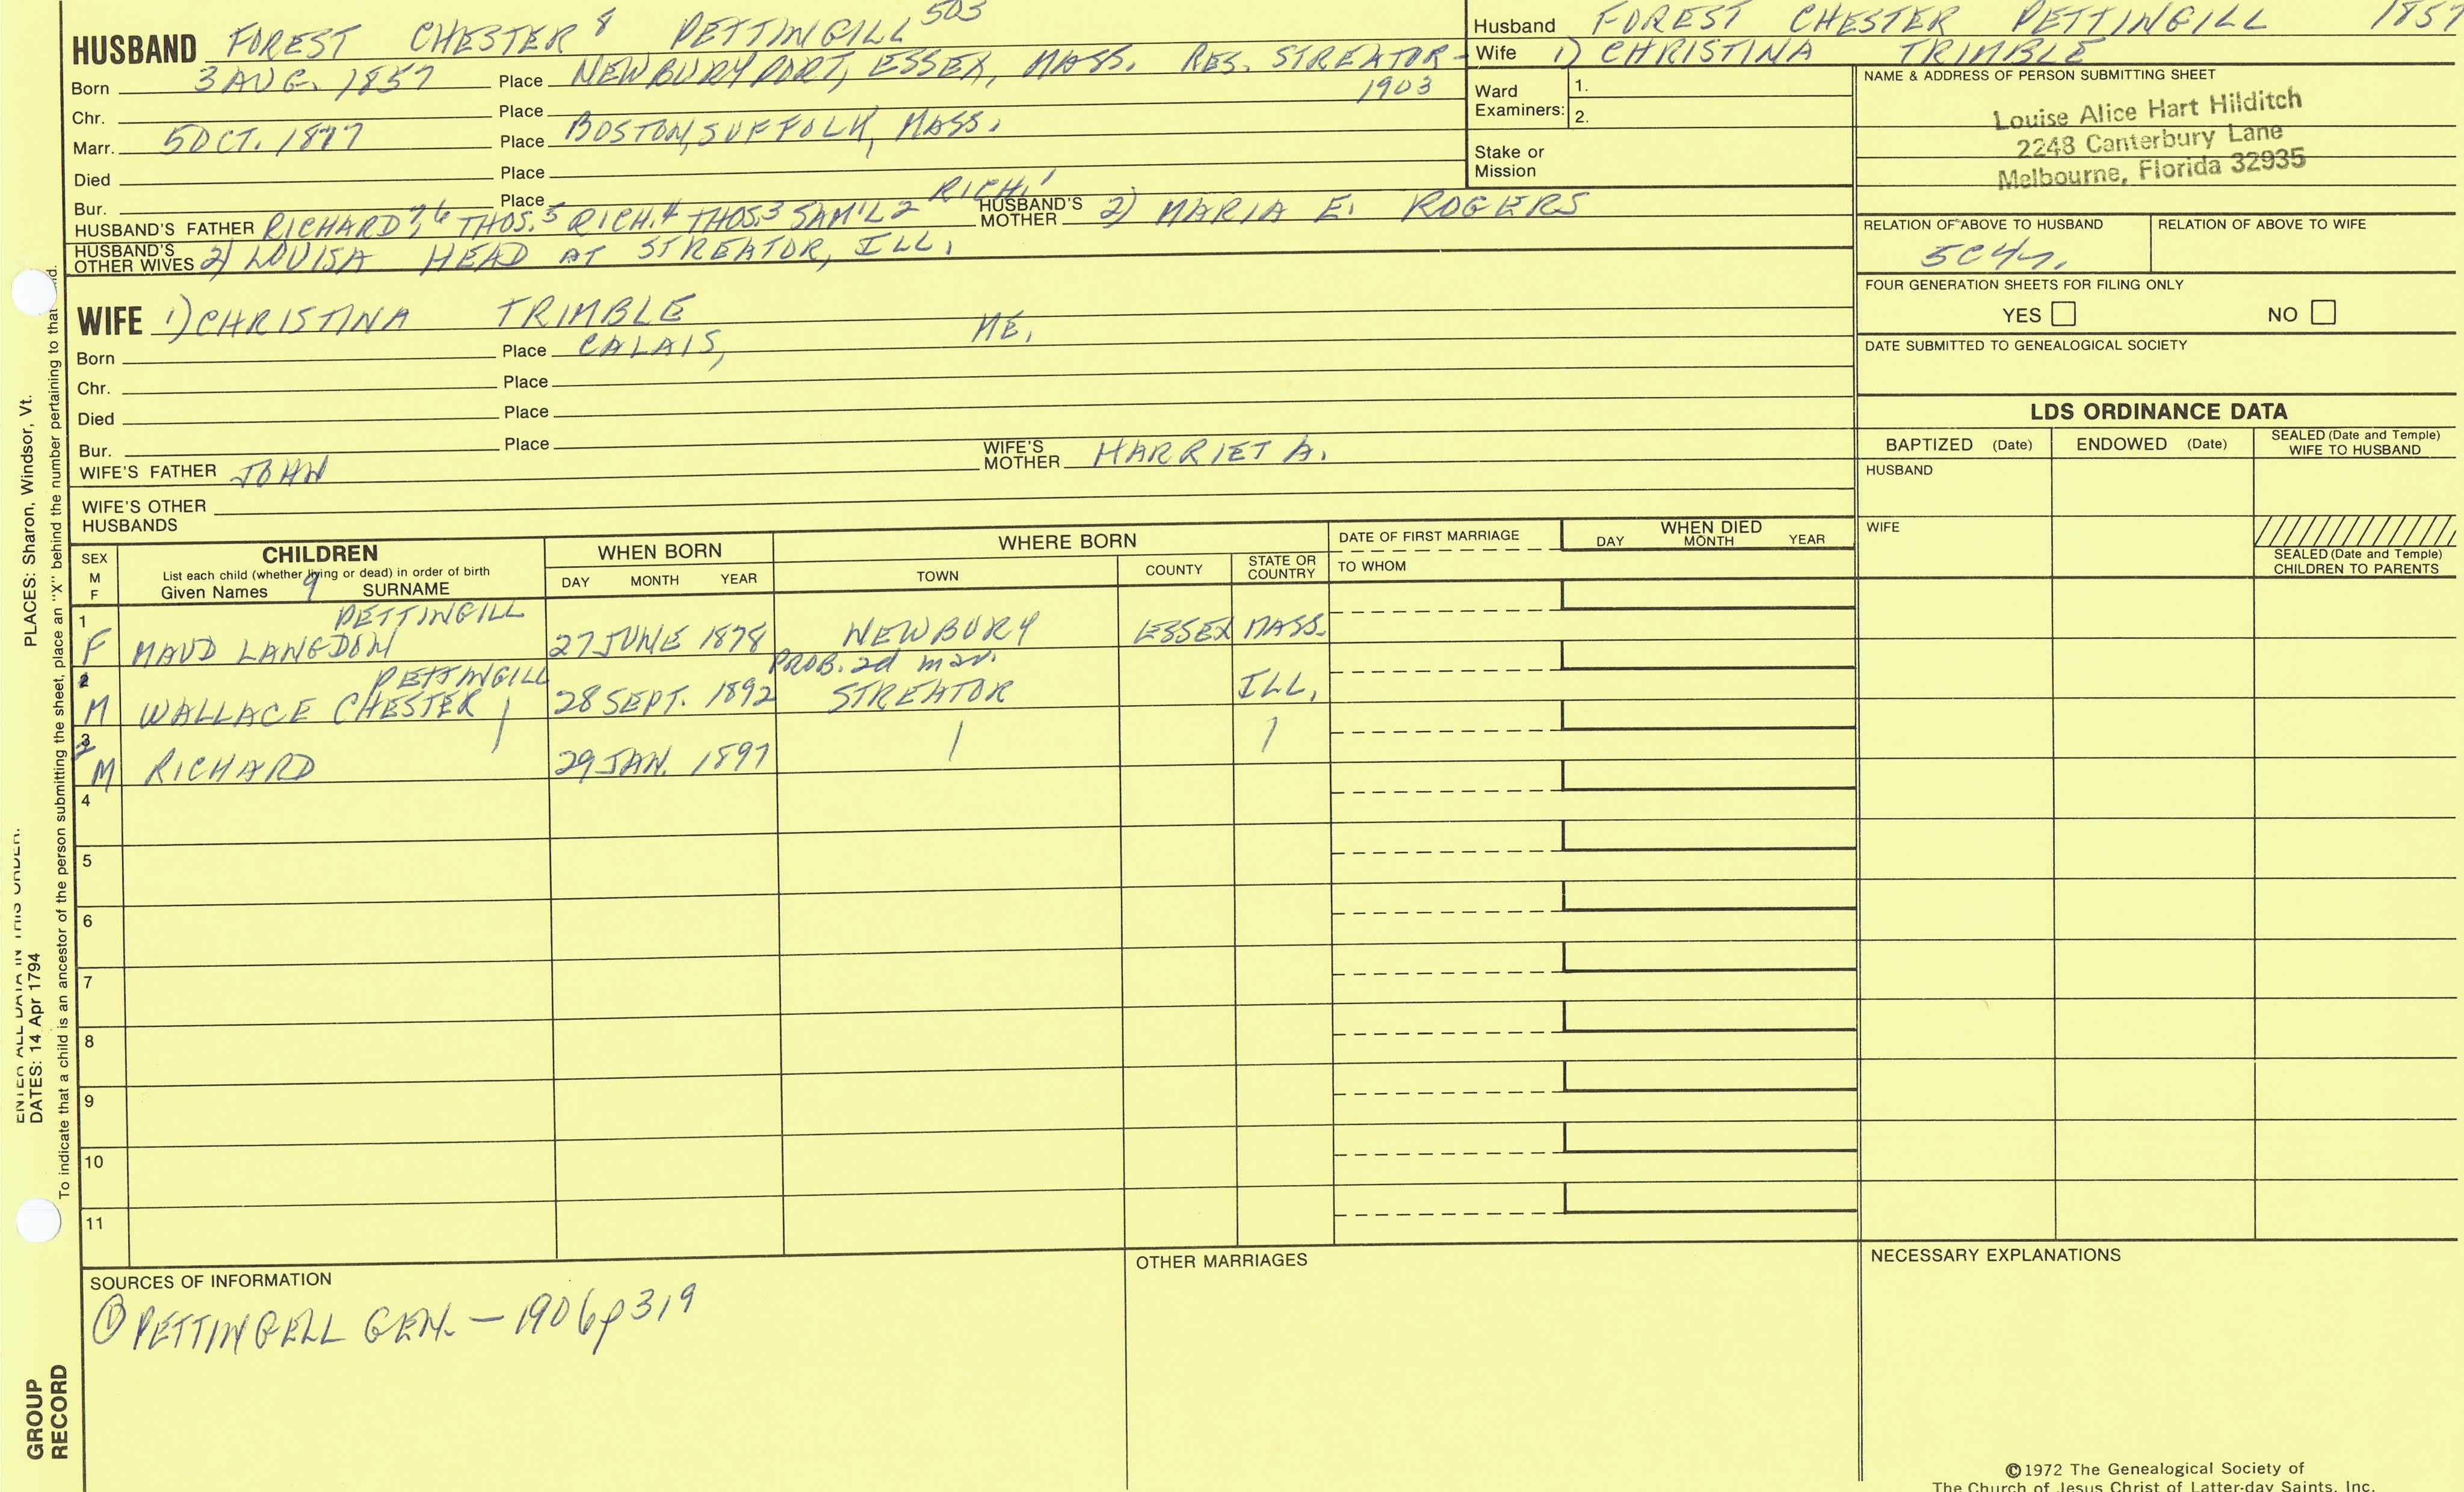 HUSBAND FOREST CHESTER 8 PETTINGILL 503
Born 3 AUG. 1857 Place NEWBURYPORT, ESSEX, MASS. RES. STREATOR - 1903
Chr. Place
Marr. 5 OCT. 1877 Place BOSTON, SUFFOLK, MASS.
Died Place
Bur. Place
HUSBAND'S FATHER RICHARD 7,6 THOS. 5 RICH. 4 THOS. 3 SAM'L 2 RICH. 1 HUSBAND'S MOTHER 2) MARIA E. ROGERS
HUSBAND'S OTHER WIVES 2) LOUISA HEAD AT STREATOR, ILL.
WIFE 1) CHRISTINA TRIMBLE
Born Place CALAIS, ME.
Chr. Place
Died Place
Bur. Place
WIFE'S FATHER JOHN WIFE'S MOTHER HARRIET A.
WIFE'S OTHER HUSBANDS
Husband FOREST CHESTER PETTINGILL 1857
Wife 1) CHRISTINA TRIMBLE
Ward Examiners: 1.
2.
Stake or Mission
NAME & ADDRESS OF PERSON SUBMITTING SHEET
Louise Alice Hart Hilditch
2248 Canterbury Lane
Melbourne, Florida 32935
RELATION OF ABOVE TO HUSBAND RELATION OF ABOVE TO WIFE
5C4r.
FOUR GENERATION SHEETS FOR FILING ONLY
YES NO
DATE SUBMITTED TO GENEALOGICAL SOCIETY
LDS ORDINANCE DATA
BAPTIZED (Date) ENDOWED (Date) SEALED (Date and Temple) WIFE TO HUSBAND
HUSBAND
WIFE
SEALED (Date and Temple) CHILDREN TO PARENTS
SEX M F CHILDREN WHEN BORN WHERE BORN DATE OF FIRST MARRIAGE WHEN DIED
List each child (whether living or dead) in order of birth
Given Names 9 SURNAME DAY MONTH YEAR TOWN COUNTY STATE OR COUNTRY TO WHOM DAY MONTH YEAR
1 PETTINGILL
F MAUD LANGDON 27 JUNE 1878 NEWBURY ESSEX MASS.
2 PETTINGILL PROB. 2d mar.
M WALLACE CHESTER 28 SEPT. 1892 STREATOR ILL.
3
M RICHARD 29 JAN. 1897
4
5
6
7
8
9
10
11
SOURCES OF INFORMATION
① PETTINGELL GEN. - 1906 p 319
OTHER MARRIAGES
NECESSARY EXPLANATIONS
©1972 The Genealogical Society of
The Church of Jesus Christ of Latter-day Saints, Inc.
PLACES: Sharon, Windsor, Vt.
ENTER ALL DATA IN THIS ORDER:
DATES: 14 Apr 1794
To indicate that a child is an ancestor of the person submitting the sheet, place an "X" behind the number pertaining to that
GROUP
RECORD